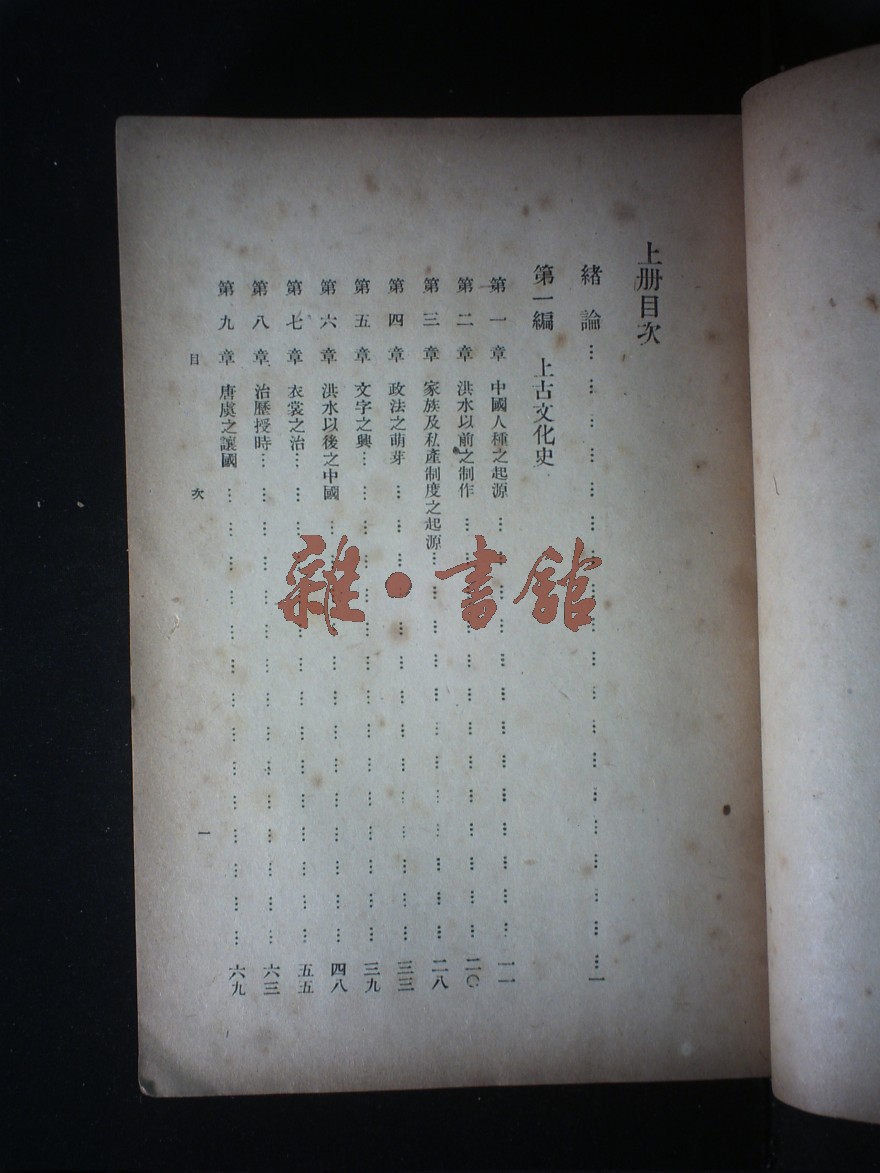 上册目次
緒論……………………………………………………一
第一編 上古文化史
第一章 中國人種之起源……………………………………一一
第二章 洪水以前之制作……………………………………二〇
第三章 家族及私產制度之起源……………………………………二八
第四章 政法之萌芽……………………………………三三
第五章 文字之興……………………………………三九
第六章 洪水以後之中國……………………………………四八
第七章 衣裳之治……………………………………五五
第八章 治歷授時……………………………………六三
第九章 唐虞之讓國……………………………………六九
目次 一
雜·書館